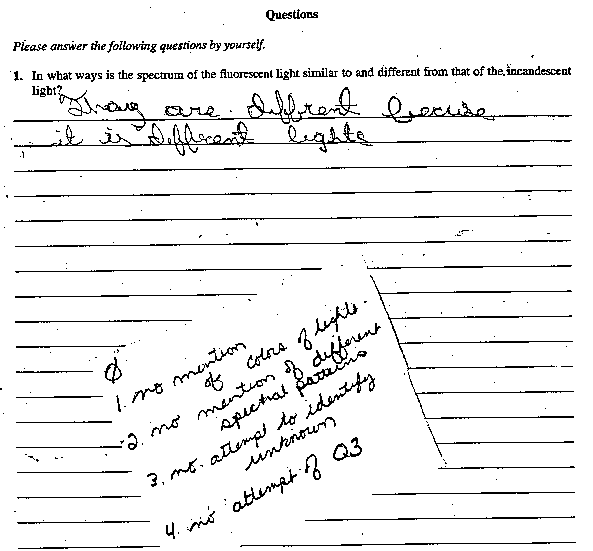 Questions
Please answer the following questions by yourself.
1. In what ways is the spectrum of the fluorescent light similar to and different from that of the incandescent
light?
Thay are diffrent becuise
it is diffrent lights
0
1. no mention
of colors of lights.
2. no mention of different
spectral patterns
3. no attempt to identify
unknown
4. no attempt of Q3